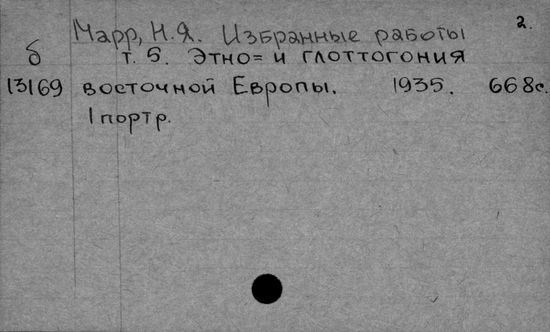 2.
Марр, Н.Я. Избранные работы
б т. 5. Этно= и глоттогония
13169 восточной Европы. 1935. 668с.
1 портр.